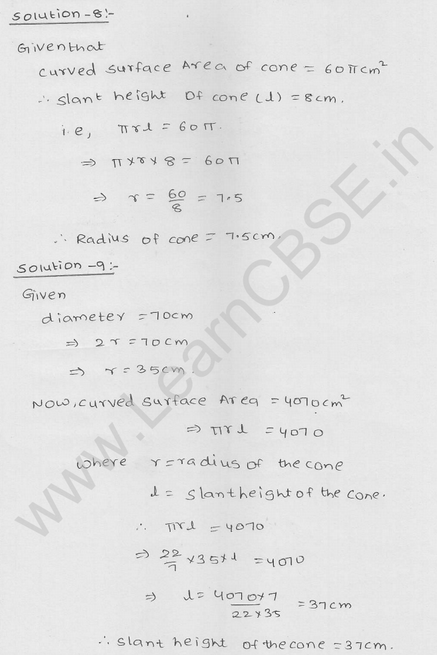 Solution-8:-
Given that
curved surface Area of cone = 60πcm²
∴ Slant height of cone (l) = 8cm.
i.e, πrl = 60π.
⇒ π×r×8 = 60π
⇒ r = 60/8 = 7.5
∴ Radius of cone = 7.5cm.
Solution-9:-
Given
diameter = 70cm
⇒ 2r = 70cm
⇒ r = 35cm.
Now, curved surface Area = 4070cm²
⇒ πrl = 4070
where r = radius of the cone
l = slant height of the cone.
∴ πrl = 4070
⇒ 22/7 ×35×l = 4070
⇒ l = 4070×7/22×35 = 37cm
∴ slant height of the cone = 37cm.
www.LearnCBSE.in